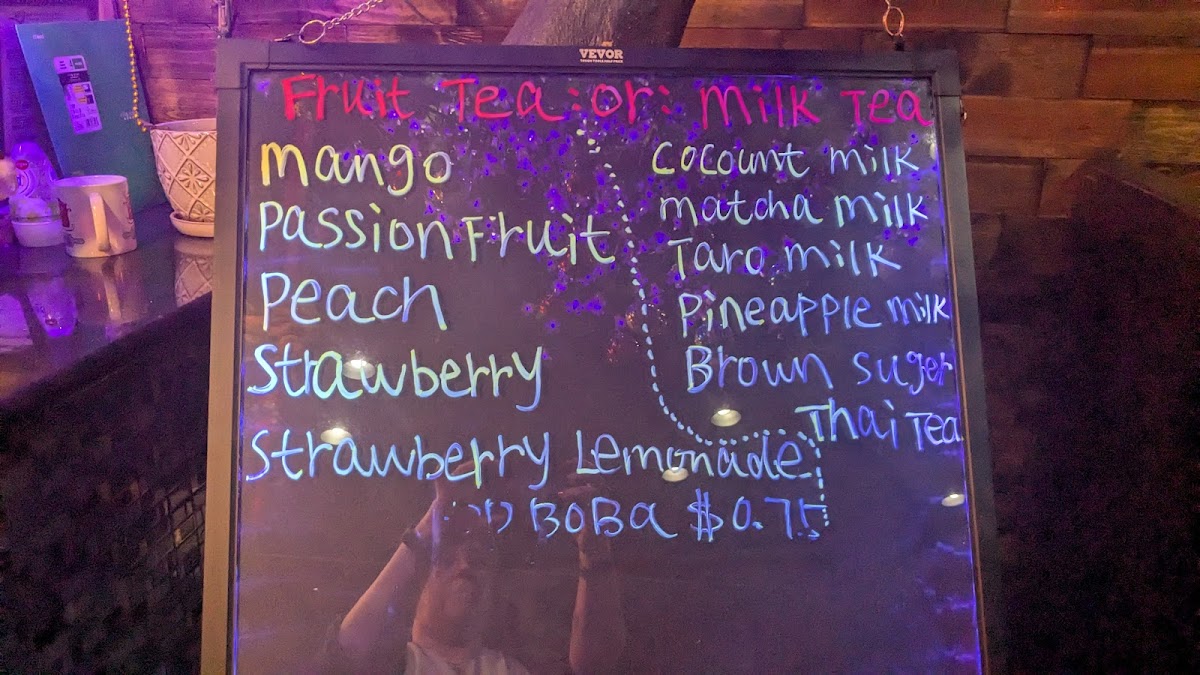 VEVOR
Fruit Tea :or: Milk Tea
Mango
Passion Fruit
Peach
Strawberry
Strawberry Lemonade
BoBa $0.75
Cocount milk
matcha milk
Taro milk
Pineapple milk
Brown suger
Thai Tea